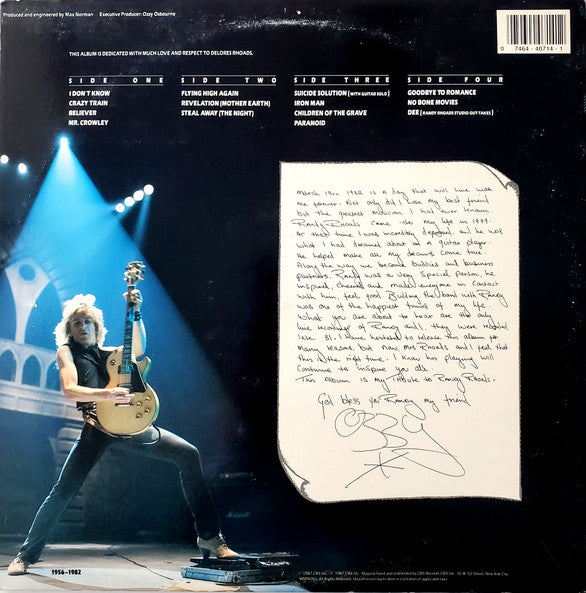 Produced and engineered by Max Norman Executive Producer: Ozzy Osbourne
0 7464-40714-1
THIS ALBUM IS DEDICATED WITH MUCH LOVE AND RESPECT TO DELORES RHOADS.
SIDE ONE
I DON'T KNOW
CRAZY TRAIN
BELIEVER
MR. CROWLEY
SIDE TWO
FLYING HIGH AGAIN
REVELATION (MOTHER EARTH)
STEAL AWAY (THE NIGHT)
SIDE THREE
SUICIDE SOLUTION (WITH GUITAR SOLO)
IRON MAN
CHILDREN OF THE GRAVE
PARANOID
SIDE FOUR
GOODBYE TO ROMANCE
NO BONE MOVIES
DEE (RANDY RHOADS STUDIO OUT-TAKES)
March 19th 1982 is a day that will live with
me forever. Not only did I lose my best friend
but the greatest musician I had ever known.
Randy Rhoads came into my life in 1979.
At that time I was incredibly depressed and he was
what I had dreamed about in a guitar player
He helped make all my dreams come true.
Along the way we became buddies and business
partners. Randy was a very special person, he
inspired, cheered and made everyone in contact
with him, feel good. Building the band with Randy
was one of the happiest times of my life.
What you are about to hear are the only
live recordings of Randy and I. they were recorded
late 81. I have hesitated to release this album for
many reasons, but now Mrs Rhoads and I feel that
this is the right time. I know his playing will
Continue to inspire you all
This Album is my Tribute to Randy Rhoads.
God bless you Randy my friend
OZZY
1956–1982